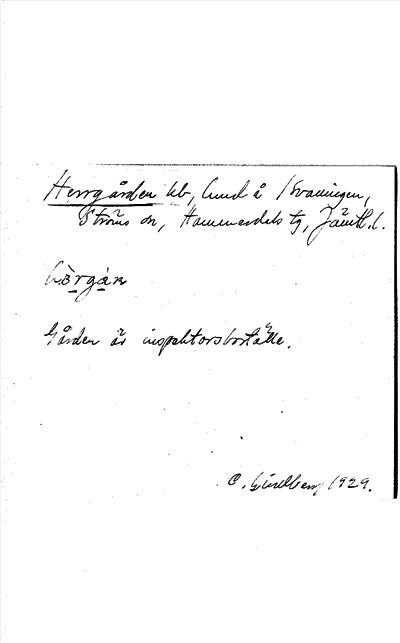 Herrgården hb, lund å Svaningen,
Ströms sn, Hammerdals tg, Jämtl. l.
hærgán
Gården är inspektorsboställe.
C. Lindberg 1929.